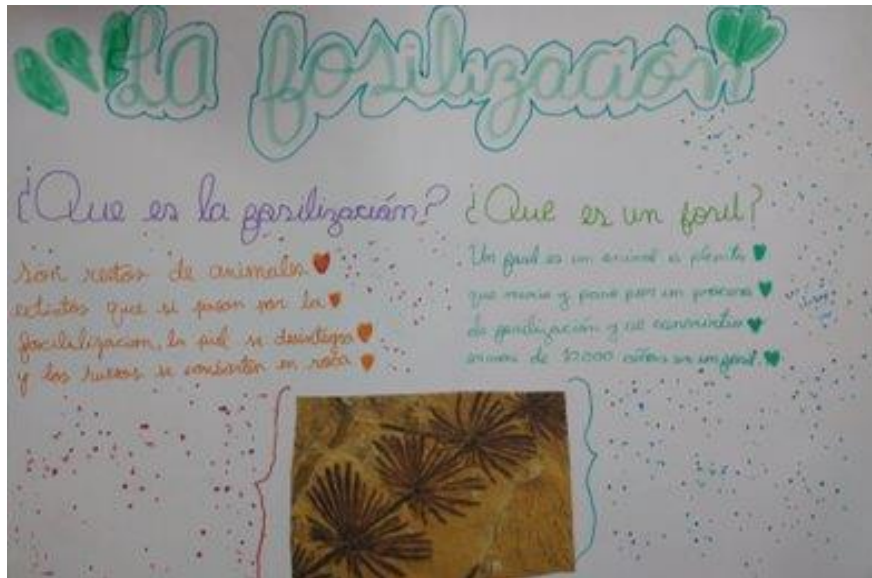 La fosilización
¿Que es la fosilización?
son restos de animales
extintos que si pasan por la
la piel se desintegra
y los huesos se convierten en roca
¿Que es un fosil?
Un fosil es un animal o planta
que murio y paso por un proceso
de fosilización y se convirtio
de 10000 años en un fosil.